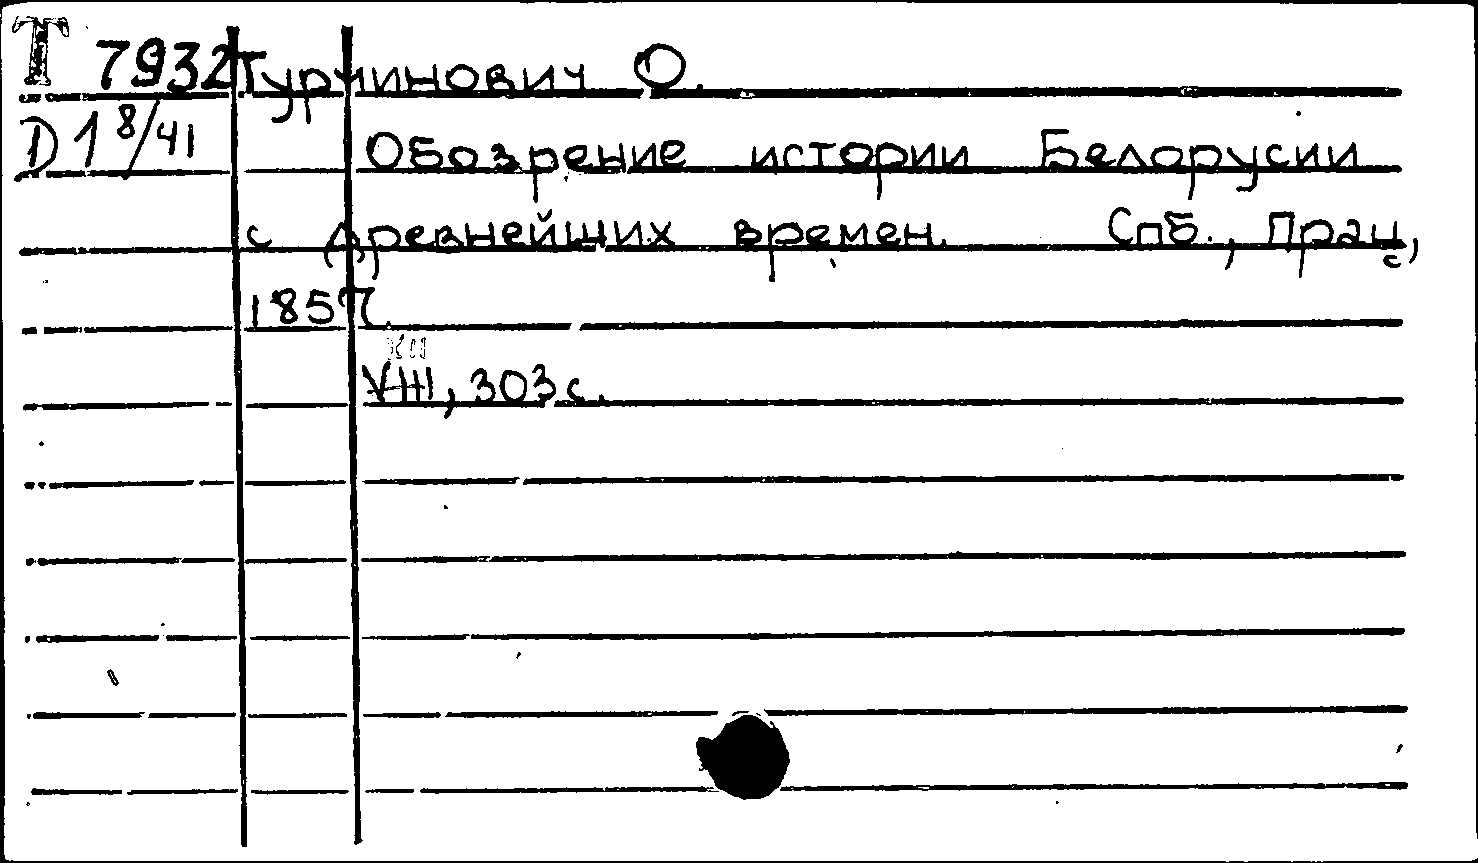 Т 7932 Турчинович О.
D 1 8/41 Обозрение истории Белорусии
с древнейших времен. Спб., Прац,
с
1857.
XII
VIII, 303 с.